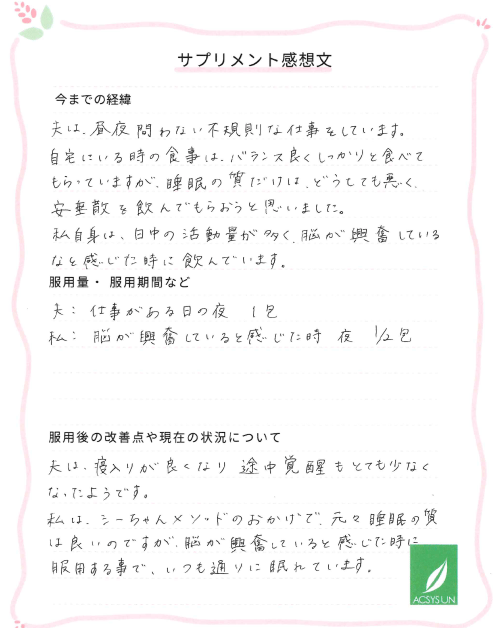 サプリメント感想文
今までの経緯
夫は、昼夜問わない不規則な仕事をしています。
自宅にいる時の食事は、バランス良くしっかりと食べて
もらっていますが、睡眠の質だけは、どうしても悪く、
安亜散を飲んでもらおうと思いました。
私自身は、日中の活動量が多く、脳が興奮している
なと感じた時に飲んでいます。
服用量・ 服用期間など
夫： 仕事がある日の夜 1包
私： 脳が興奮していると感じた時 夜 1/2包
服用後の改善点や現在の状況について
夫は、寝入りが良くなり 途中覚醒もとても少なく
なったようです。
私は、シーちゃんメソッドのおかげで、元々睡眠の質
は良いのですが、脳が興奮していると感じた時に
服用する事で、いつも通りに眠れています。
ACSYSUN